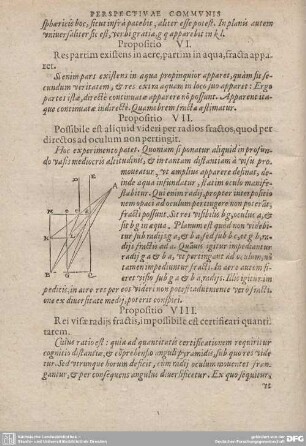 PERSPECTIVAE COMMVNIS
sphæricis hoc, sicut infrà patebit, aliter esse potest. In planis autem
vniuersaliter sic est, verbi gratia, g q apparebit in k l.
Propositio VI.
Res partim existens in aere, partim in aqua, fracta appa
ret.
Si enim pars existens in aqua propinquior apparet, quàm sit se-
cundum veritatem, & res extra aquam in loco suo apparet: Ergo
partes istæ, directè continuatæ apparere nõ possunt. Apparent itaque
continuatæ indirectè. Quamobrem fracta æstimatur.
Propositio VII.
Possibile est aliquid videri per radios fractos, quod per
directos ad oculum non pertingit.
Huc experimento patet. Quoniam si ponatur aliquid in profun-
do vasis mediocris altitudinis, & in tantum distantiam à visu pro-
moueatur, vt amplius apparere desinat,
deinde aqua infundatur, statim eundo manife-
stabitur. Qui enim radij, propter interpositio
nem opaci ad oculum pertingere non poterãt,
fracti possunt. Sit res visibilis b g, oculus a, &
sit b g in aqua. Planum est quod non videbi-
tur sub radijs g a, & b a, sed sub b c, et g b, ra-
dijs fractis ad a. Quãuis igitur impediantur
radij g a & b a, ne pertingant ad oculum, nõ
tamen impediuntur fracti. In aere autem fi-
eret visio sub g a & b a, radijs. Illis igitur im
peditis, in aere res per eos videri non potest: aduenientè verò fractio
ne ex diuersitate medij, poterit conspici.
Propositio VIII.
Rei visæ radijs fractis, impossibile est certificari quanti-
tatem.
Cuius ratio est: quia ad quantitatis certificationem requiritur
cognitio distantiæ, & comprehensio anguli pyramidis, sub quo res vide-
tur. Sed vtrunque horum deficit, cum radij oculum mouentes fran-
guntur, & per consequens angulus diuersificetur. Ex quo sequitur,
vt